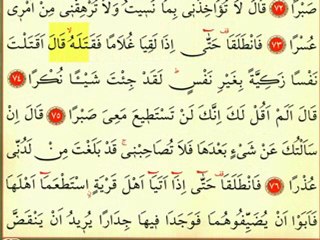 صَبْرًا ﴿٧٢﴾ قَالَ لَا تُؤَاخِذْنِي بِمَا نَسِيتُ وَلَا تُرْهِقْنِي مِنْ اَمْرِي
عُسْرًا ﴿٧٣﴾ فَانْطَلَقَا حَتّٰٓى اِذَا لَقِيَا غُلَامًا فَقَتَلَهُ قَالَ اَقَتَلْتَ
نَفْسًا زَكِيَّةً بِغَيْرِ نَفْسٍ لَقَدْ جِئْتَ شَيْـًٔا نُكْرًا ﴿٧٤﴾
قَالَ اَلَمْ اَقُلْ لَكَ اِنَّكَ لَنْ تَسْتَطِيعَ مَعِيَ صَبْرًا ﴿٧٥﴾ قَالَ اِنْ
سَاَلْتُكَ عَنْ شَيْءٍ بَعْدَهَا فَلَا تُصَاحِبْنِي قَدْ بَلَغْتَ مِنْ لَدُنِّي
عُذْرًا ﴿٧٦﴾ فَانْطَلَقَا حَتّٰٓى اِذَٓا اَتَيَٓا اَهْلَ قَرْيَةٍ اسْتَطْعَمَٓا اَهْلَهَا
فَاَبَوْا اَنْ يُضَيِّفُوهُمَا فَوَجَدَا فِيهَا جِدَارًا يُرِيدُ اَنْ يَنْقَضَّ